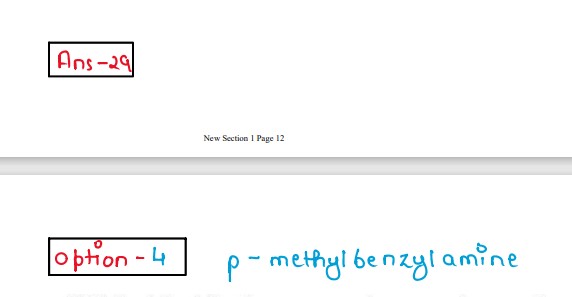 Ans-29
New Section 1 Page 12
option - 4 p - methylbenzylamine